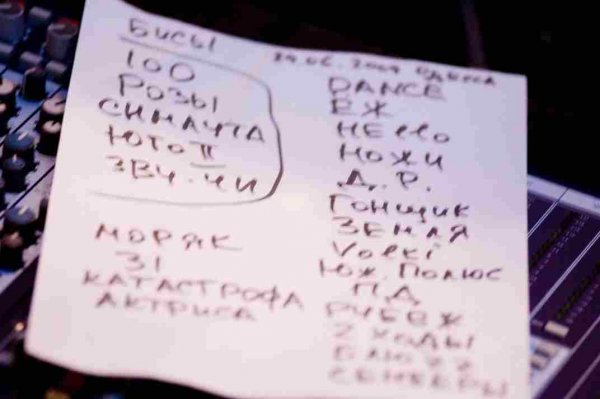 БИСЫ
100
РОЗЫ
СИМАЧТА
ЮТОП
ЗВЧ.ЧИ
МОРЯК
31
КАТАСТРОФА
АКТРИСА
ОДЕССА
DANCE
ЕЖ
HELLO
НОЖИ
Д.Р.
ГОНЩИК
ЗЕМЛЯ
Volki
ЮЖ. ПОЛЮС
П.Д
РУБЕЖ
2 ХОДЫ
БЛЮЗЗ